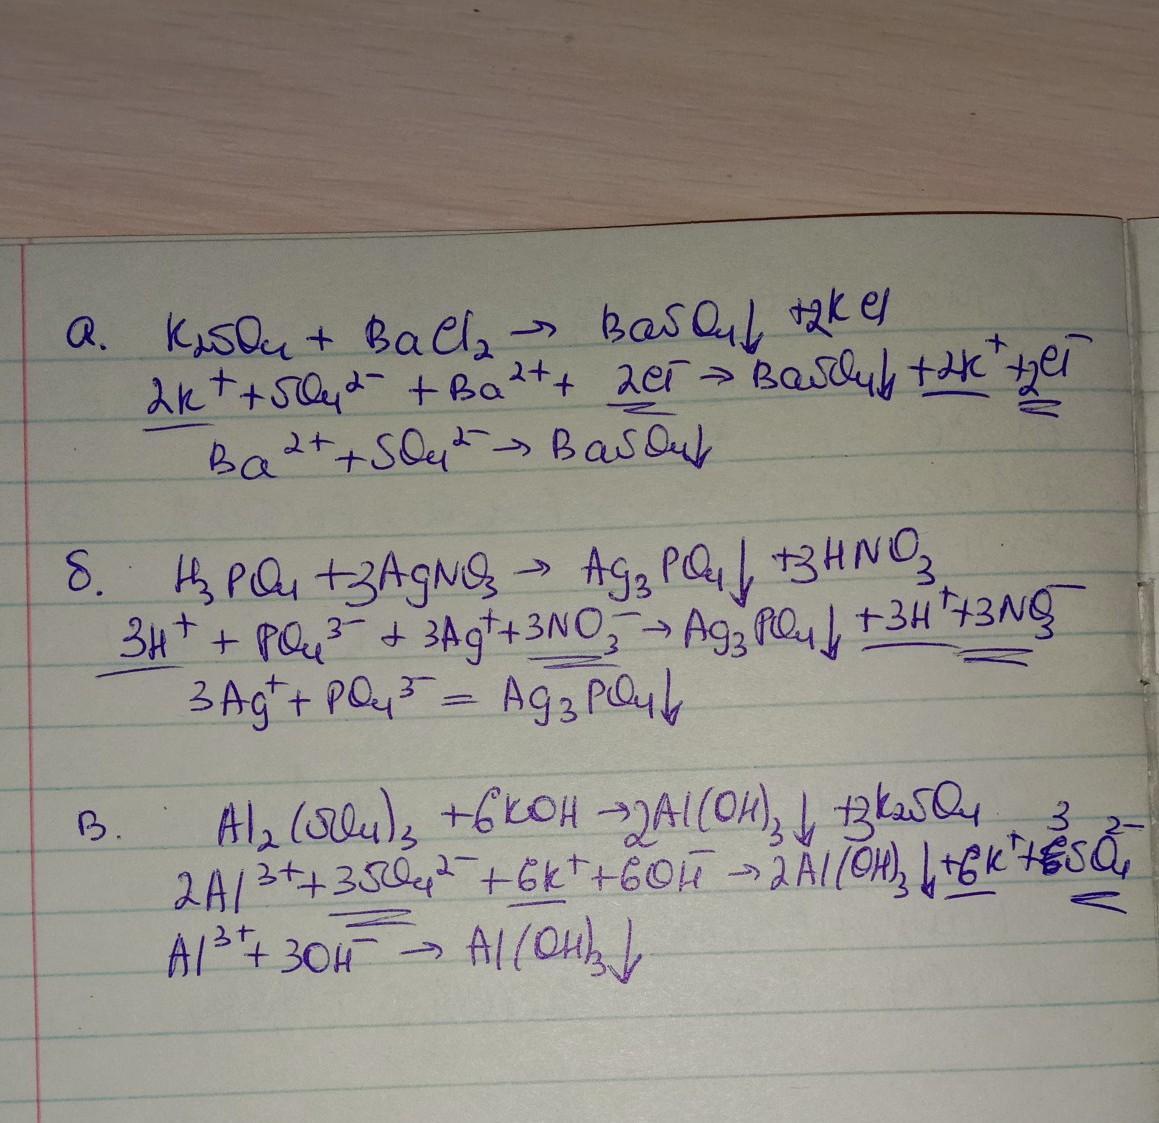 а. K₂SO₄ + BaCl₂ → BaSO₄↓ +2KCl
2K⁺ + SO₄²⁻ + Ba²⁺ + 2Cl⁻ → BaSO₄↓ +2K⁺ +2Cl⁻
Ba²⁺ + SO₄²⁻ → BaSO₄↓
б. H₃PO₄ +3AgNO₃ → Ag₃PO₄↓ +3HNO₃
3H⁺ + PO₄³⁻ + 3Ag⁺ + 3NO₃⁻ → Ag₃PO₄↓ +3H⁺ +3NO₃⁻
3Ag⁺ + PO₄³⁻ = Ag₃PO₄↓
в. Al₂(SO₄)₃ +6KOH → 2Al(OH)₃↓ +3K₂SO₄
2Al³⁺ + 3SO₄²⁻ + 6K⁺ + 6OH⁻ → 2Al(OH)₃↓ +6K⁺ + 3SO₄²⁻
Al³⁺ + 3OH⁻ → Al(OH)₃↓